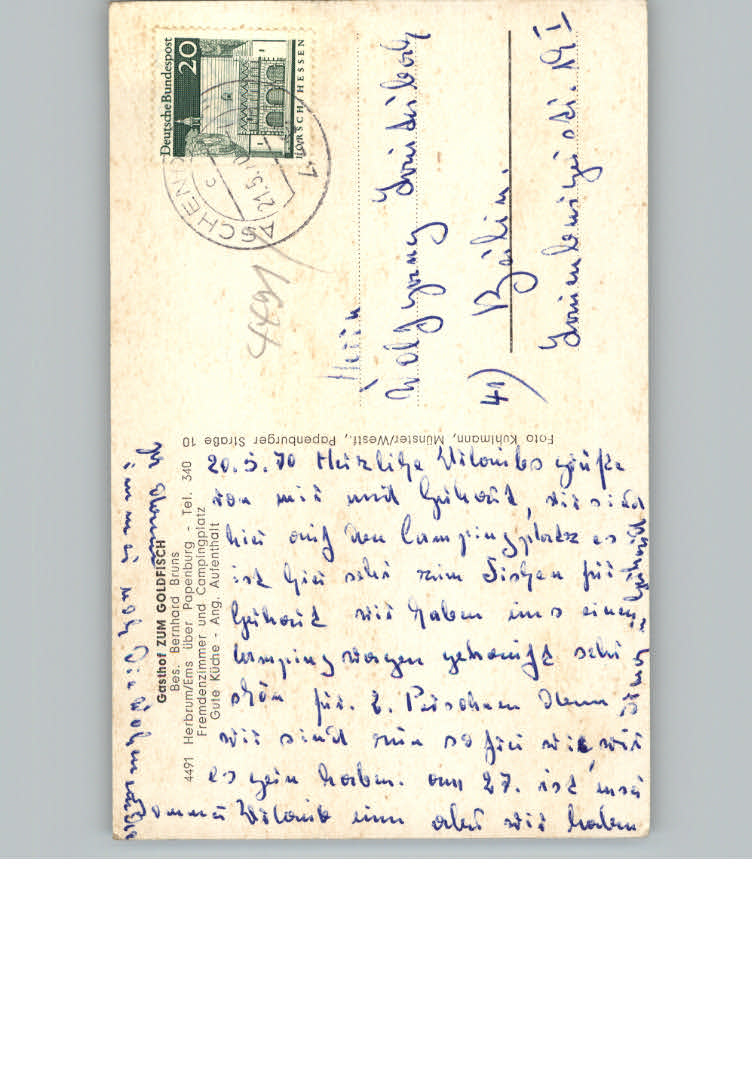 Gasthof ZUM GOLDFISCH
Bes. Bernhard Bruns
4491 Herbrum/Ems über Papenburg - Tel. 340
Fremdenzimmer und Campingplatz
Gute Küche - Ang. Aufenthalt
Foto Kuhlmann, Münster/Westf., Papenburger Straße 10
Deutsche Bundespost
20
LORSCH/HESSEN
ASCHEN
21.5.70
1
c
4491
Herrn
Wolfgang
41) Berlin.
20.5.70 Herzliche Urlaubs grüße
von mir und Gerhard, wir sind
hier auf den Campingplatz es
ist hier sehr zum Fischen für
Gerhard wir haben uns einen
Campingwagen gekauft sehr
schön für. 2. Personen denn
wir sind nun so frei wie wir
es gern haben. am 27. ist unser
Urlaub um aber wir haben
immer noch die Wochenenden